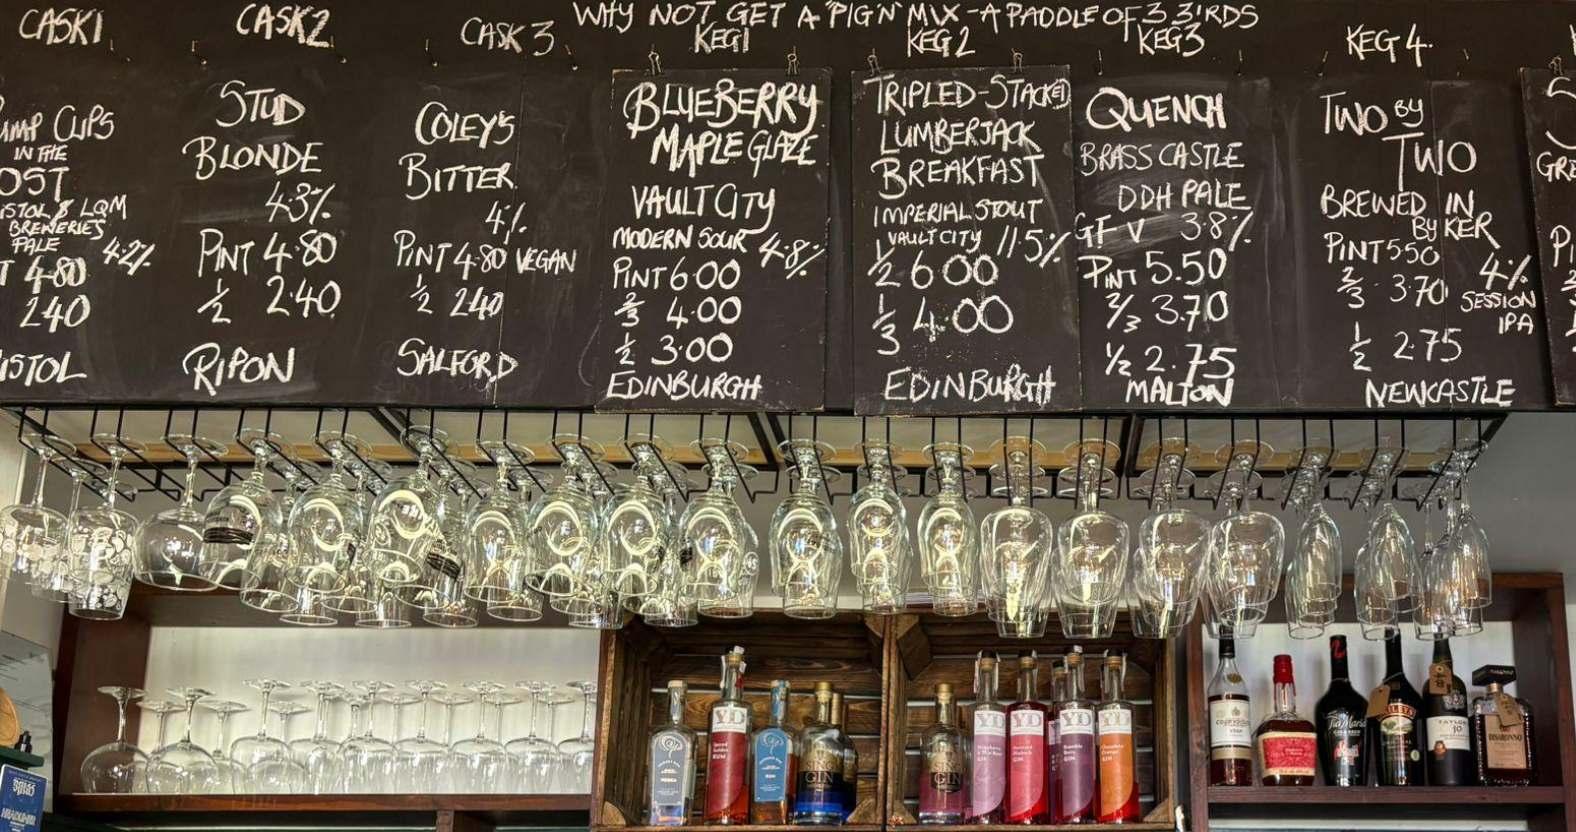 WHY NOT GET A 'PIG N' MIX - A PADDLE OF 3 3IRDS
CASK1
IN THE
BREWERIES
PALE 4.2%
4.80
240
CASK2
STUD
BLONDE
4.3%
PINT 4.80
1/2 2.40
RIPON
CASK 3
COLEY'S
BITTER
4%
PINT 4.80 VEGAN
1/2 240
SALFORD
KEG1
BLUEBERRY
MAPLE GLAZE
VAULT CITY
MODERN SOUR 4.8%
PINT 6.00
2/3 4.00
1/2 3.00
EDINBURGH
KEG 2
TRIPLED-STACKED
LUMBERJACK
BREAKFAST
IMPERIAL STOUT
VAULT CITY 11.5%
1/2 6.00
1/3 4.00
EDINBURGH
KEG3
QUENCH
BRASS CASTLE
DDH PALE
GF V 3.8%
PINT 5.50
2/3 3.70
1/2 2.75
MALTON
KEG 4.
TWO BY
TWO
BREWED IN
BY KER
PINT 550
2/3 3.70
4%
SESSION
IPA
1/2 2.75
NEWCASTLE
YD
RUM
GIN
GIN
YD
YD
YD
YD
Tia Maria
BAILEYS
TAYLOR
10
DISARONNO